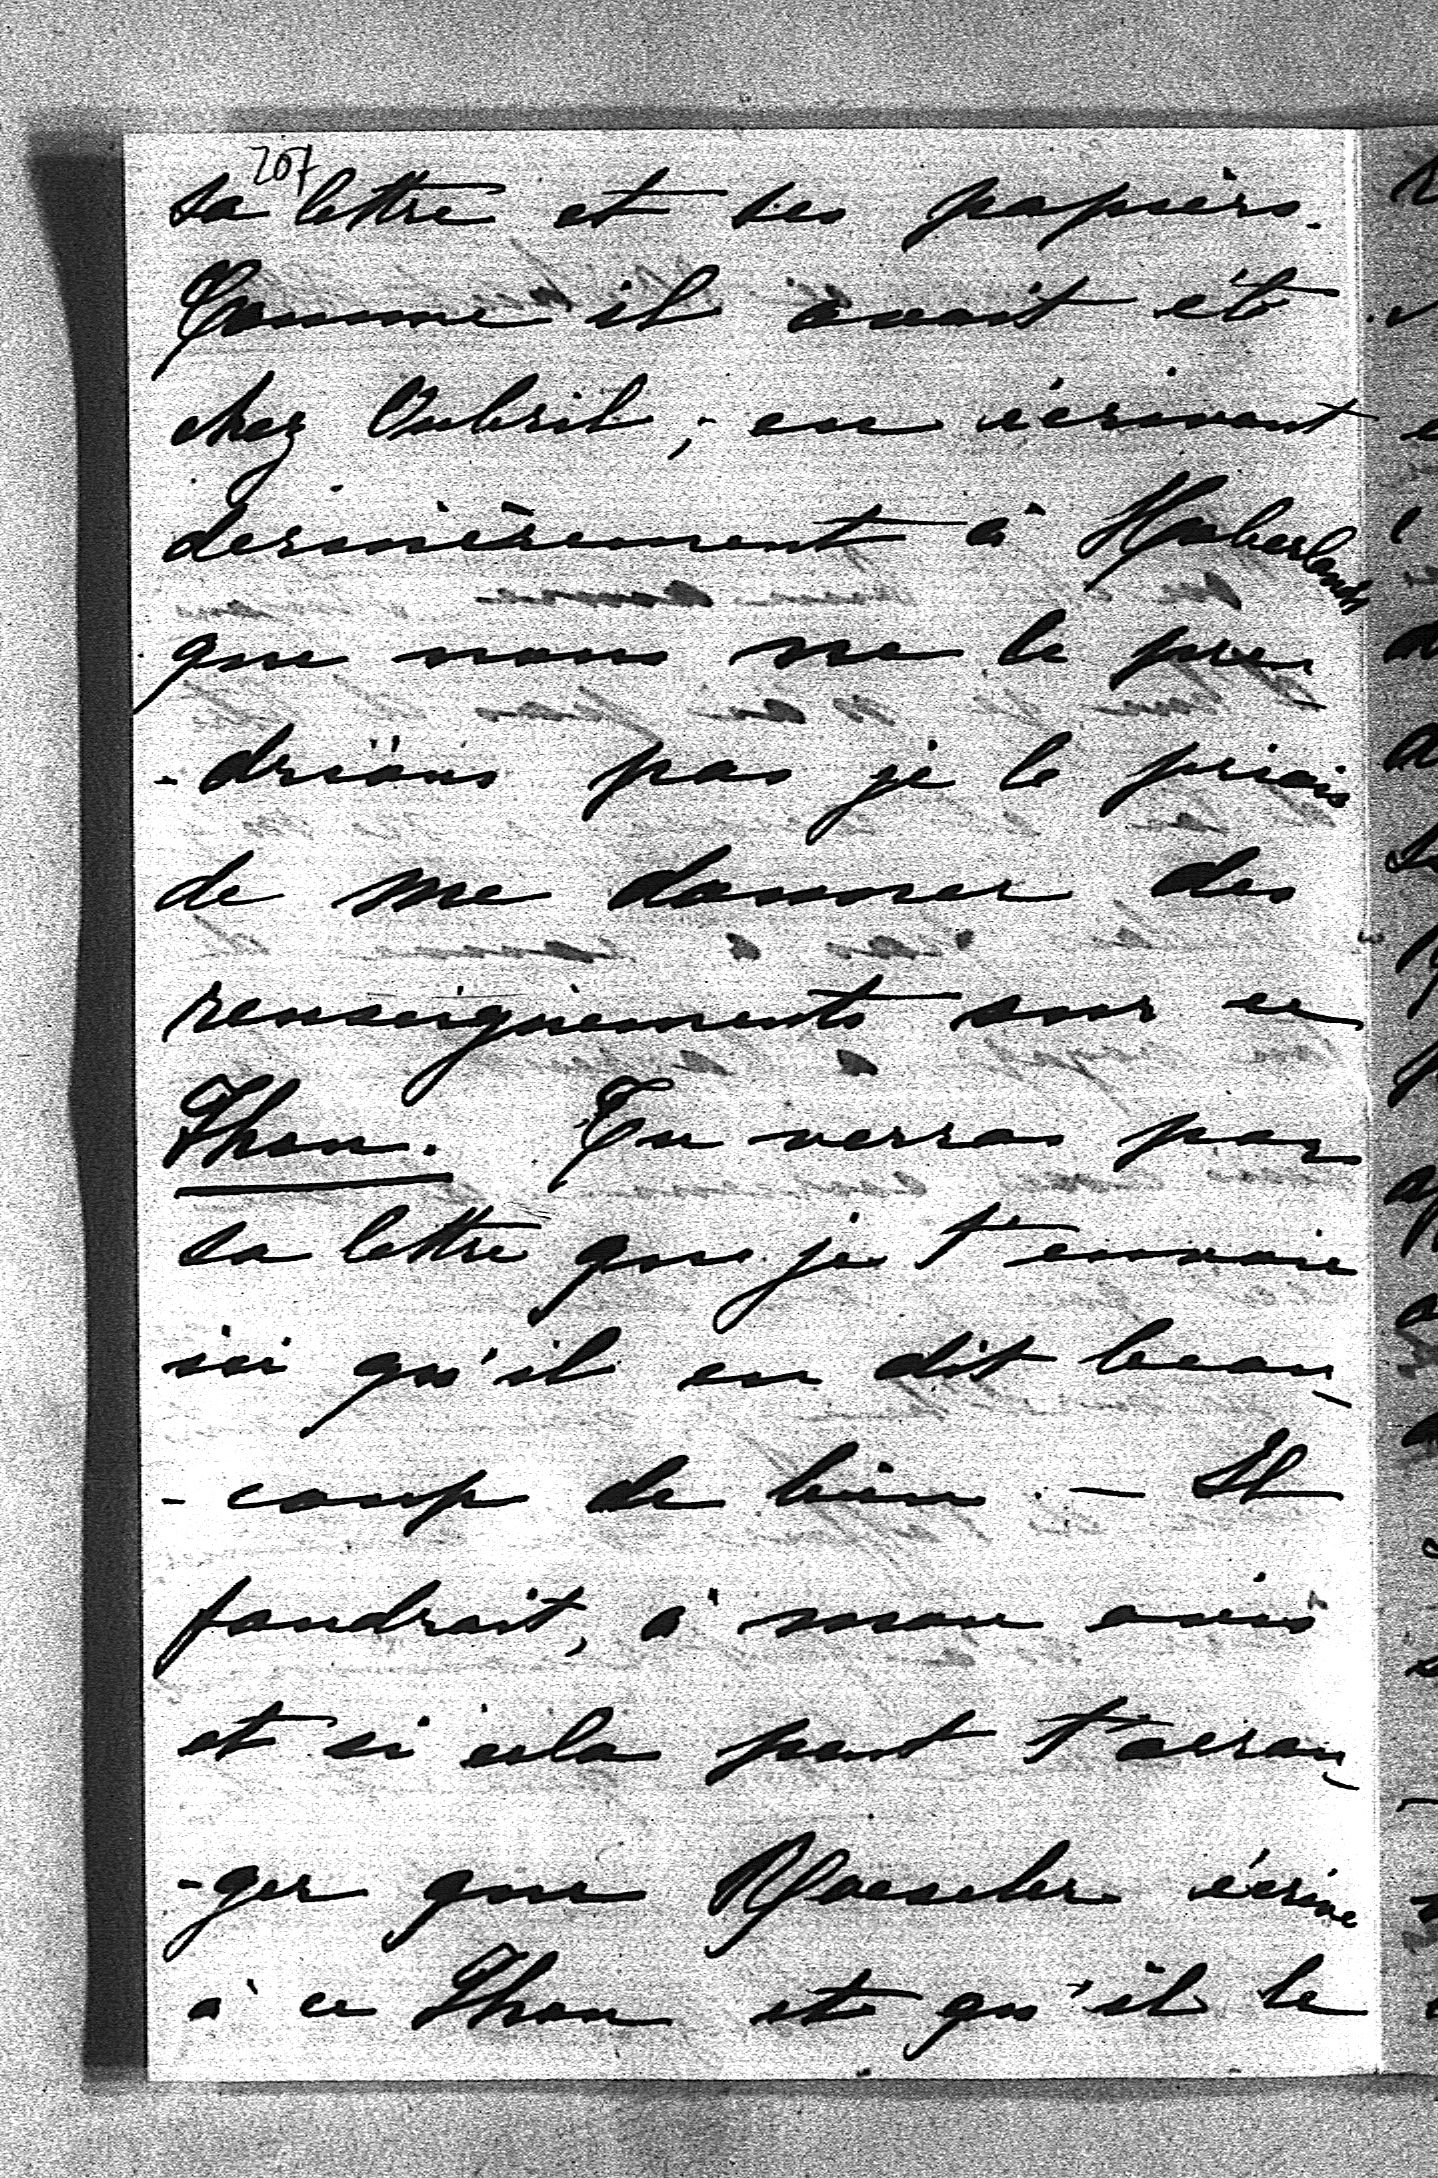 207
sa lettre et ses papiers.
Comme il avait été
chez Oubril, en écrivant
dernièrement à Haberlandt
que nous ne le pren-
-drions pas je le priais
de me donner des
renseignements sur ce
Thon. Tu verras par
sa lettre que je t'envoie
ici qu'il en dit beau-
-coup de bien. — Il
faudrait, à mon avis
et si cela peut t'arran-
-ger que écrive
à ce Thon et qu'il le